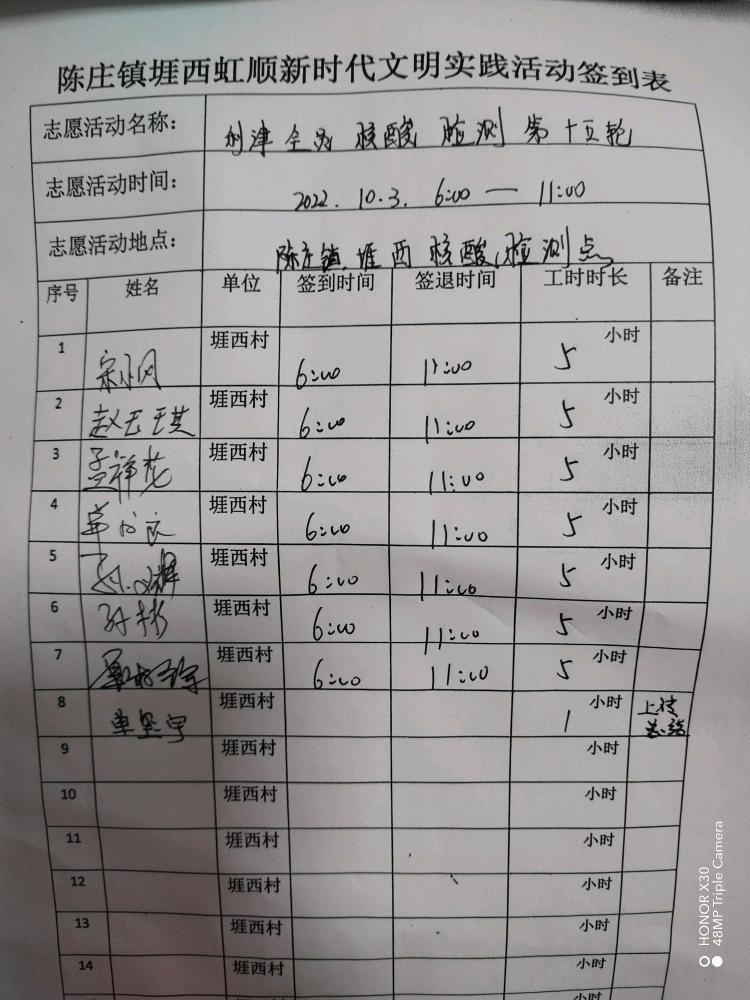 陈庄镇堐西虹顺新时代文明实践活动签到表
志愿活动名称: 利津全员核酸检测第十五轮
志愿活动时间: 2022.10.3. 6:00 — 11:00
志愿活动地点: 陈庄镇.堐西核酸检测点
序号 姓名 单位 签到时间 签退时间 工时时长 备注
1 堐西村 6:00 11:00 5小时
2 赵玉琪 堐西村 6:00 11:00 5小时
3 孟祥花 堐西村 6:00 11:00 5小时
4 堐西村 6:00 11:00 5小时
5 堐西村 6:00 11:00 5小时
6 孙彬 堐西村 6:00 11:00 5小时
7 堐西村 6:00 11:00 5小时
8 单坚宇 堐西村 1小时 上传总结
9 堐西村 小时
10 堐西村 小时
11 堐西村 小时
12 堐西村 小时
13 堐西村 小时
14 堐西村 小时
HONOR X30
48MP Triple Camera